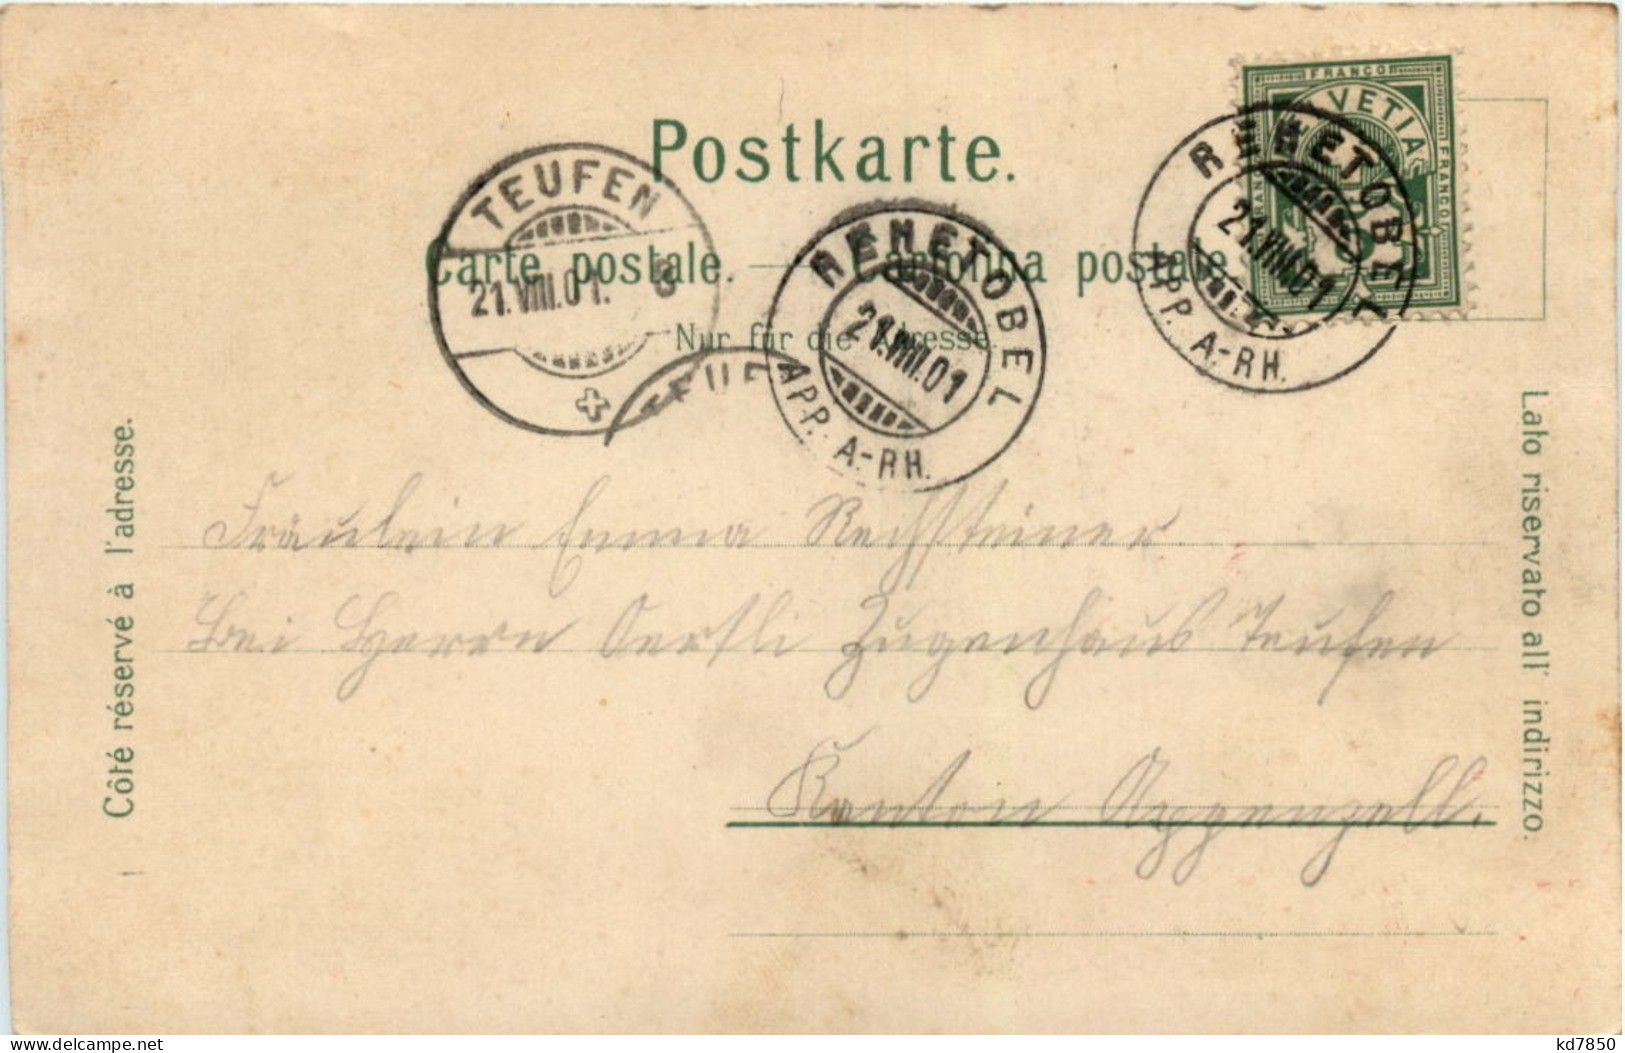 Postkarte.
Carte postale. — Cartolina postale
Nur für die Adresse.
FRANCO
HELVETIA
FRANCO
REHETOBEL
21.VIII.01
APP. A.-RH.
REHETOBEL
21.VIII.01
APP. A.-RH.
TEUFEN
21.VIII.01. 8
TEUF
Côté réservé à l'adresse.
Lato riservato all' indirizzo.
Fräulein Emma Rechsteiner.
Bei Herrn Oertli Zugenhaus Teufen
Kanton Appenzell.
www.delcampe.net
kd7850